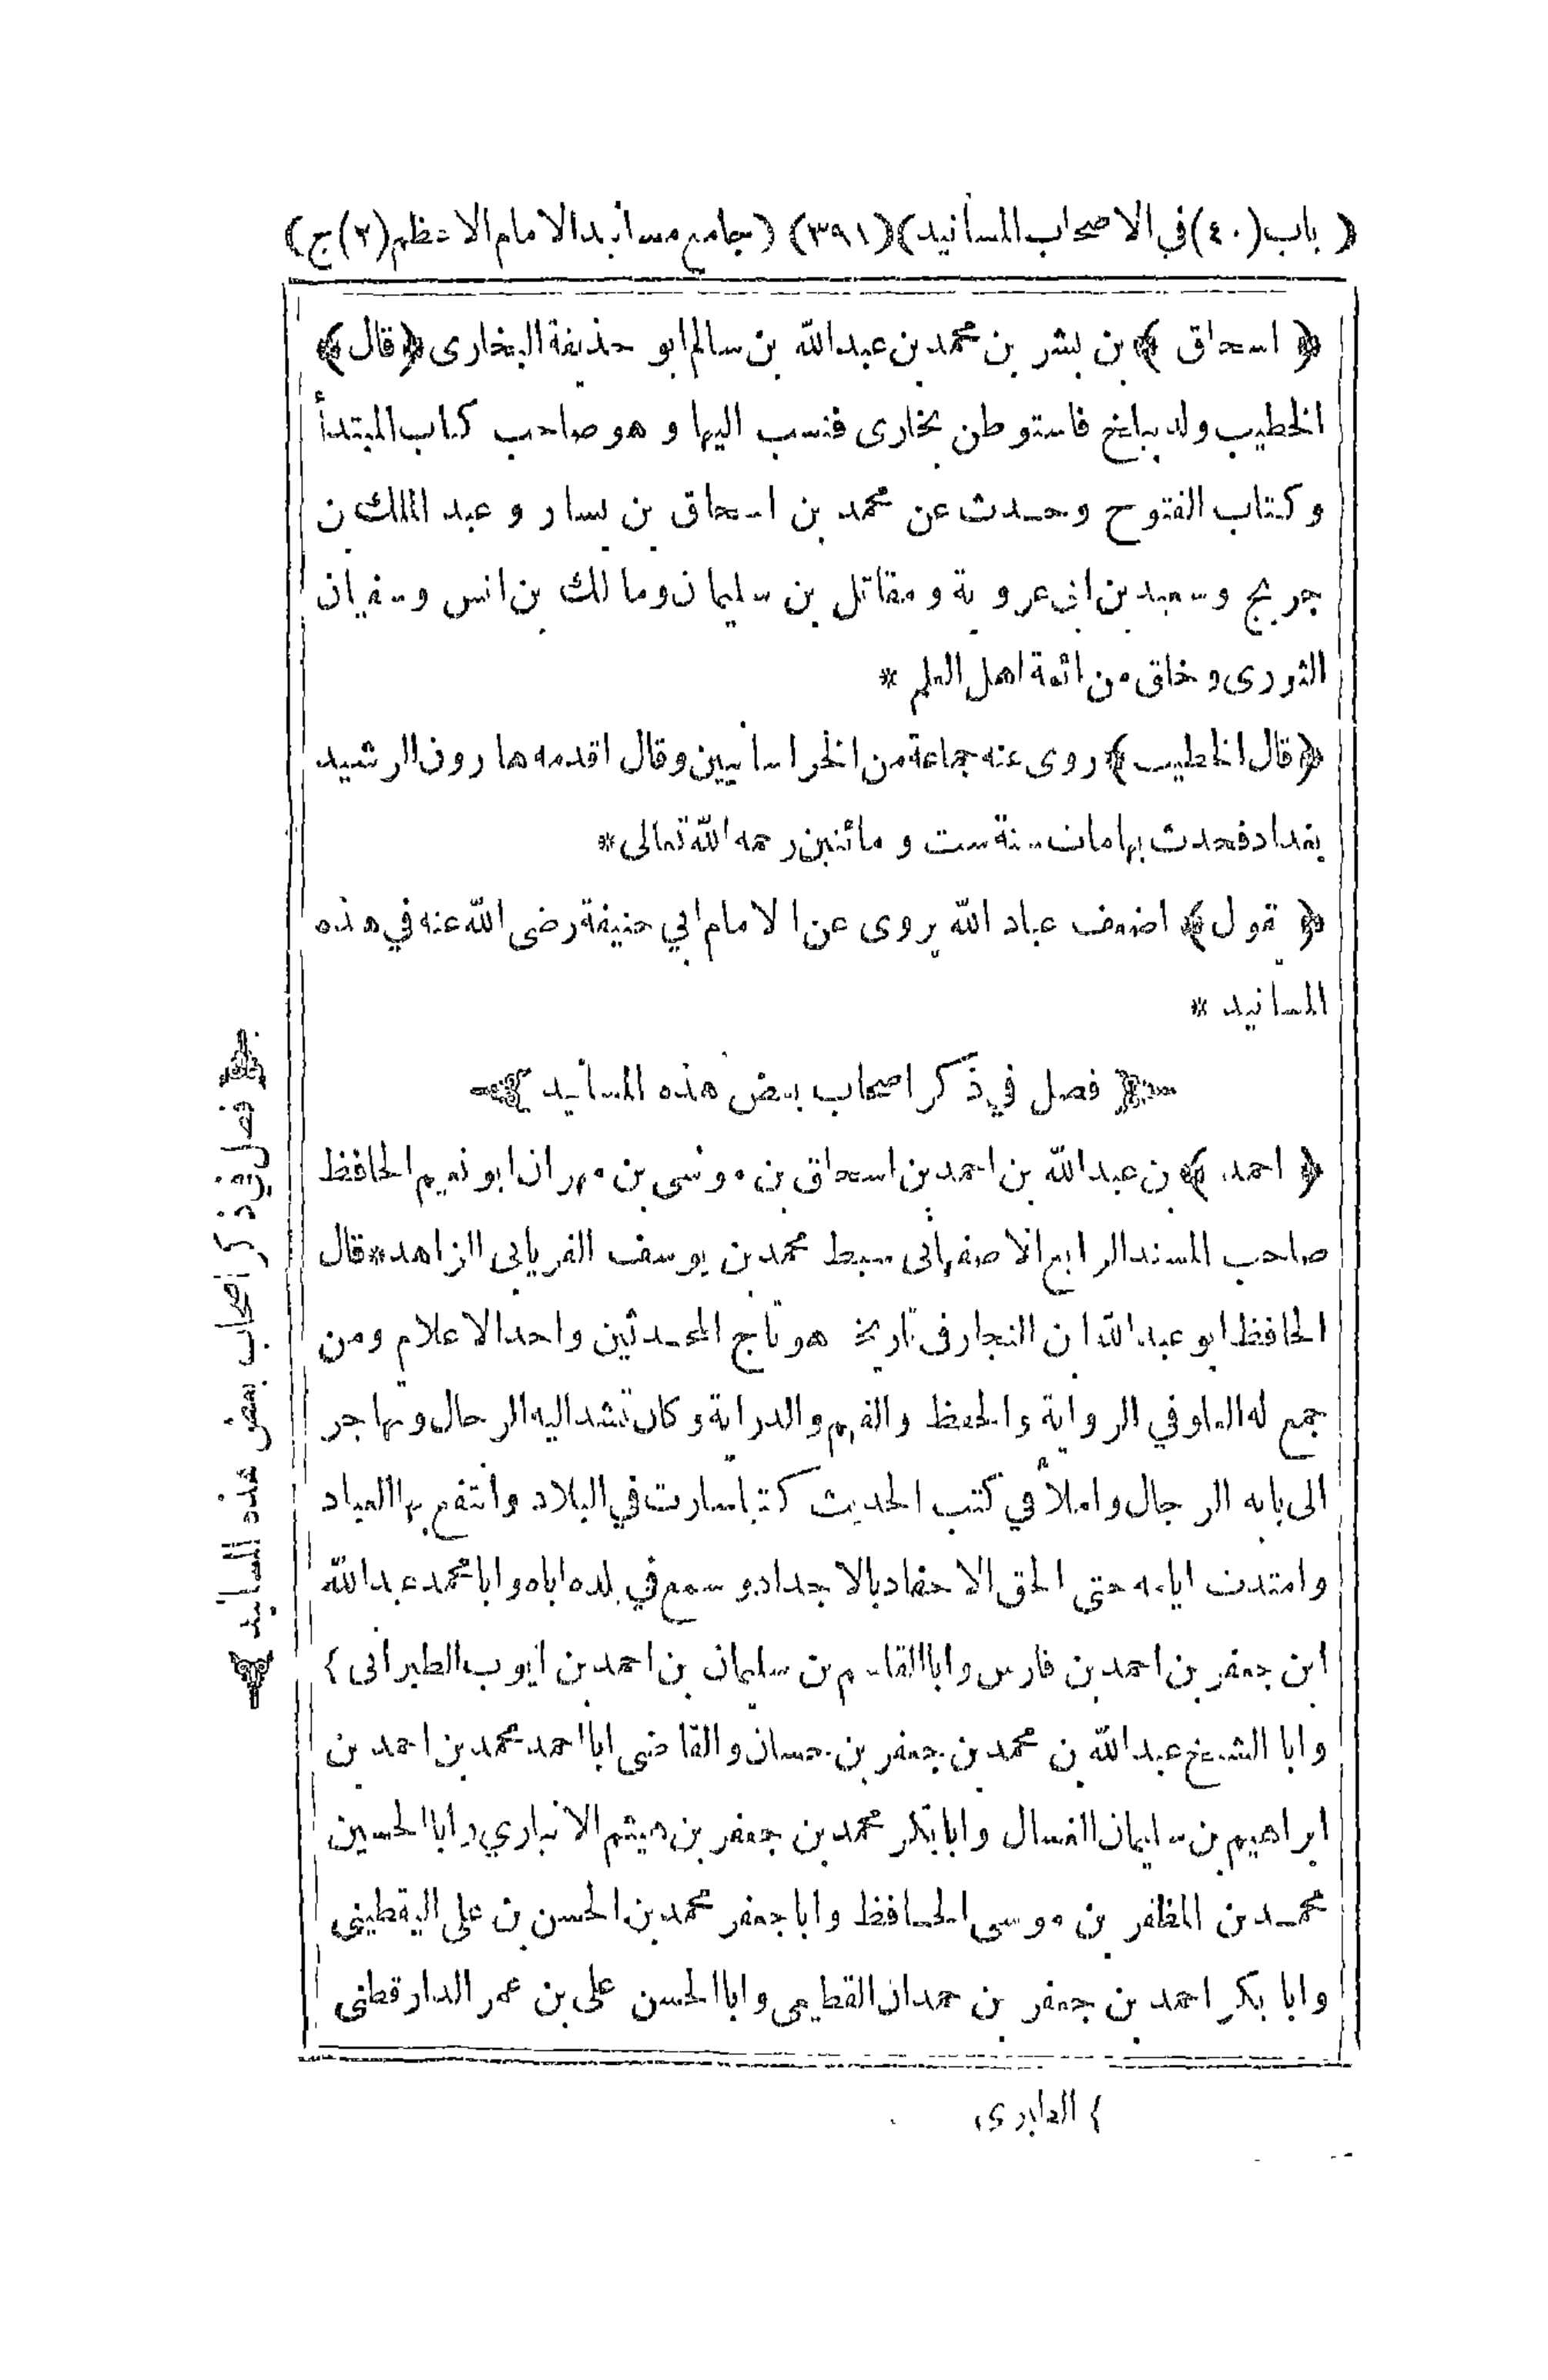 ( باب (٤٠) في الاصحاب المسانيد) (٣٩١) (جامع مسانيد الامام الاعظم (٢) ج)
﴿ اسحاق ﴾ بن بشر بن محمد بن عبدالله بن سالم ابو حذيفة البخارى ﴿ قال ﴾
الخطيب ولد ببلخ فاستوطن بخارى فنسب اليها و هو صاحب كتاب المبتدأ
و كتاب الفتوح وحدث عن محمد بن اسحاق بن يسار و عبد الملك بن
جريج و سعيد بن ابى عروبة و مقاتل بن سليمان و مالك بن انس و سفيان
الثورى و خلق من ائمة اهل العلم *
﴿ قال الخطيب ﴾ روى عنه جماعة من الخراسانيين وقال اقدمه هارون الرشيد
بغداد فحدث بها مات سنة ست و مائتين رحمه الله تعالى *
﴿ يقول ﴾ اضعف عباد الله يروى عن الامام ابي حنيفة رضى الله عنه في هذه
المسانيد *
﴿ فصل في ذكر اصحاب بعض هذه المسانيد ﴾
﴿ احمد ﴾ بن عبدالله بن احمد بن اسحاق بن موسى بن مهران ابو نعيم الحافظ
صاحب المسند الرابع الاصفهانى سبط محمد بن يوسف الفريابى الزاهد * قال
الحافظ ابو عبدالله ابن النجار فى تاريخه هو تاج المحدثين واحد الاعلام ومن
جمع له العلو في الرواية والحفظ والفهم والدراية و كان تشد اليه الرحال و تهاجر
الى بابه الرجال و املأ في كتب الحديث كتبا سارت في البلاد وانتفع بها العباد
وامتدت ايامه حتى الحق الاحفاد بالاجداد و سمع في بلده اباه وابا محمد عبدالله
ابن جعفر بن احمد بن فارس وابا القاسم بن سليمان بن احمد بن ايوب الطبرانى }
وابا الشيخ عبدالله بن محمد بن جعفر بن حسان والقاضى ابا احمد محمد بن احمد بن
ابراهيم بن سليمان الغسال وابا بكر محمد بن جعفر بن هيثم الانباري وابا الحسين
محمد بن المظفر بن موسى الحافظ وابا جعفر محمد بن الحسن بن على اليقطينى
وابا بكر احمد بن جعفر بن حمدان القطيعى وابا الحسن على بن عمر الدارقطنى
﴿ فصل في ذكر اصحاب بعض هذه المسانيد ﴾